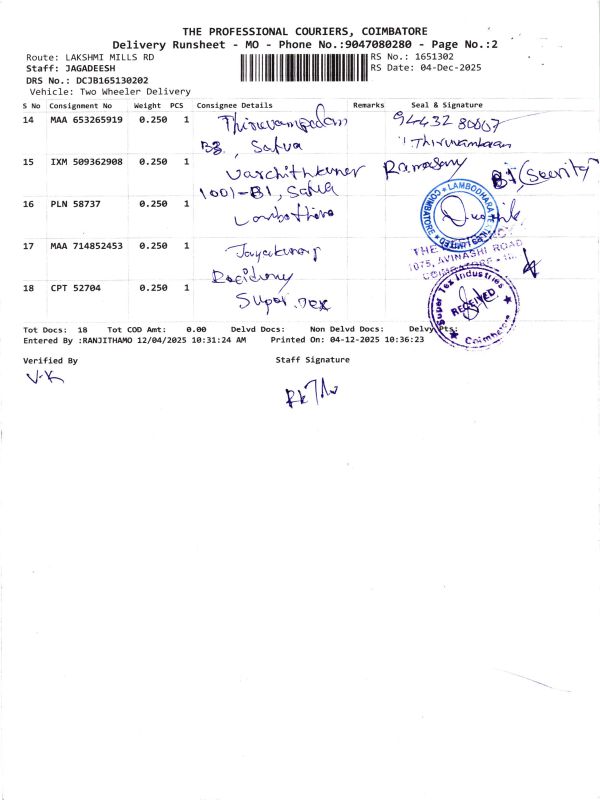 THE PROFESSIONAL COURIERS, COIMBATORE
Delivery Runsheet - MO - Phone No.:9047080280 - Page No.:2
Route: LAKSHMI MILLS RD
RS No.: 1651302
Staff: JAGADEESH
RS Date: 04-Dec-2025
DRS No.: DCJB165130202
Vehicle: Two Wheeler Delivery
S No Consignment No Weight PCS Consignee Details Remarks Seal & Signature
14 MAA 653265919 0.250 1
94432 80007
B3, Satva
15 IXM 509362908 0.250 1 Ramasamy
B1 (Security)
1001-B1, Satva
16 PLN 58737 0.250 1
LAMBODHARA COIMBATORE
17 MAA 714852453 0.250 1
THE
1075, AVINASHI ROAD
Residency
18 CPT 52704 0.250 1 Super Tex
Super Tex Industries
RECEIVED
Coimbatore
Tot Docs: 18 Tot COD Amt: 0.00 Delvd Docs: Non Delvd Docs: Delvy Pts:
Entered By :RANJITHAMO 12/04/2025 10:31:24 AM Printed On: 04-12-2025 10:36:23
Verified By Staff Signature
V-K